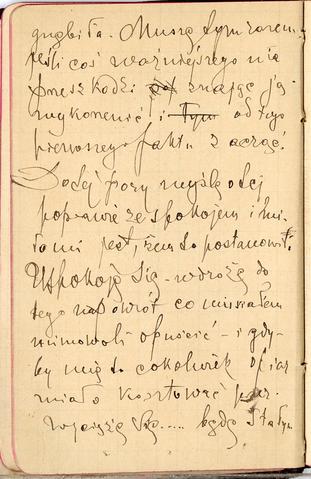 gnębiła. Muszę tym razem
jeśli coś ważniejszego nie
przeszkodzi znając ją
wykonenić i tym od tego
pierwszego faktu zacząć.
Do tej pory myślę o tej
poprawie ze spokojem i mi-
ło mi jest, żem to postanowił.
Uspokoję się - wdrożę do
tego na powrót co miałem
mimowoli opuścić - i gdy-
by mię to cokolwiek ofiar
miało kosztować
się.... będę stałym